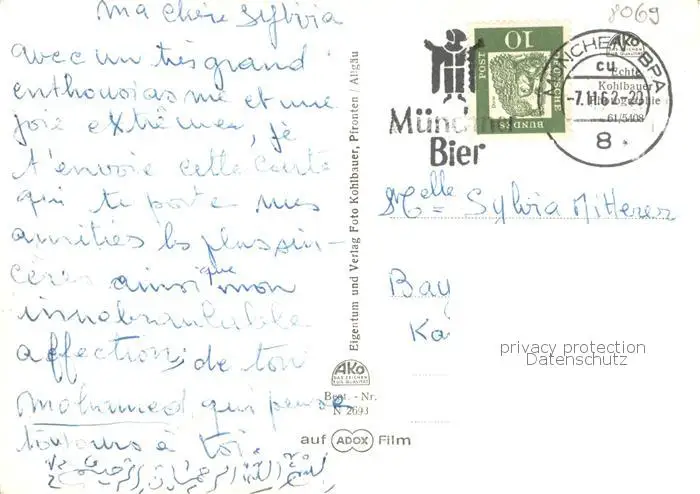 8069
Ma chère Sylvia
avec un très grand
enthousiasme et une
joie extrême, je
t'envoie cette carte
qui te porte mes
amitiés les plus sin-
cères ainsi que mon
affection, de ton
Mohamed qui pense
toujours à toi.
Eigentum und Verlag Foto Kohlbauer, Pfronten / Allgäu
AKO
DAS ZEICHEN FÜR QUALITÄT
Best. - Nr.
N 2693
auf ADOX Film
Münchner
Bier
10
POST
DEUTSCHE
BUNDES
MÜNCHEN BPA
cu
-7.11.62-20
8
AKO
Echte
Kohlbauer
Photographie
61/5408
Melle Sylvia Mitterer
Bay
Ka
privacy protection
Datenschutz